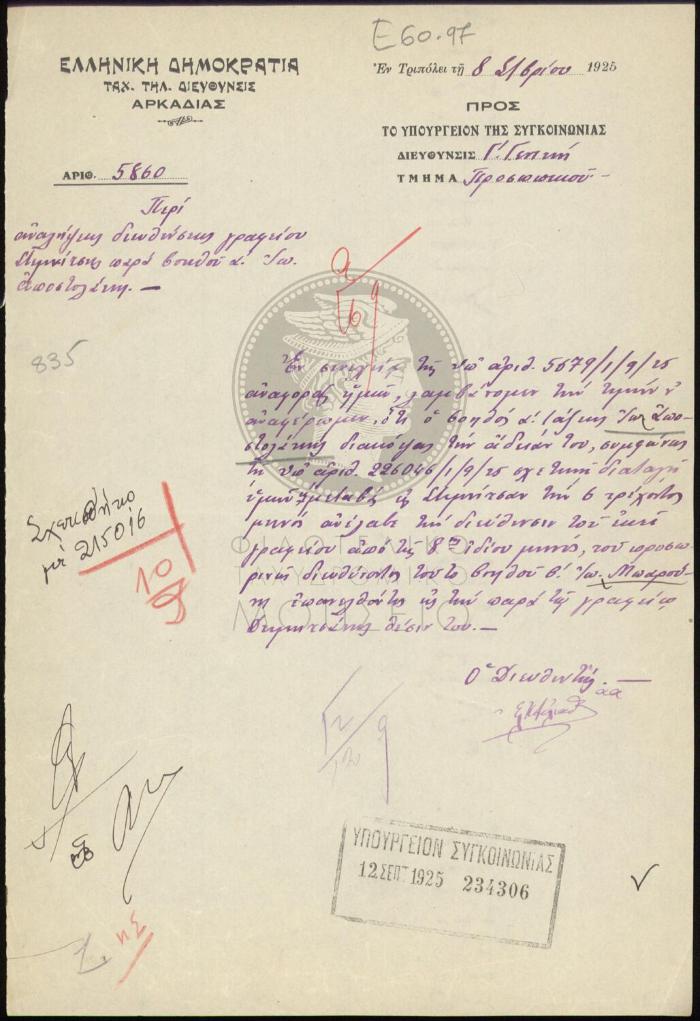 Ε60.97
ΕΛΛΗΝΙΚΗ ΔΗΜΟΚΡΑΤΙΑ
ΤΑΧ. ΤΗΛ. ΔΙΕΥΘΥΝΣΙΣ
ΑΡΚΑΔΙΑΣ
ΑΡΙΘ. 5860
Ἐν Τριπόλει τῇ 8 Σ/βρίου 1925
ΠΡΟΣ
ΤΟ ΥΠΟΥΡΓΕΙΟΝ ΤΗΣ ΣΥΓΚΟΙΝΩΝΙΑΣ
ΔΙΕΥΘΥΝΣΙΣ Γ. Γενική
ΤΜΗΜΑ Προσωπικοῦ -
Περί
ἀναλήψεως διευθύνσεως γραφείου
Δημητσάνης παρά βοηθοῦ α΄ Ἰω.
Ἀποστολάκη. —
835
Ἐν συνεχείᾳ τῆς ὑπ' ἀριθ. 5679/1/9/25
ἀναφορᾶς ἡμῶν, λαμβάνομεν τήν τιμήν ν'
ἀναφέρωμεν, ὅτι ὁ βοηθός α΄ τάξεως Ἰω. Ἀπο-
στολάκης διακόψας τήν ἄδειάν του, συμφώνως
τῇ ὑπ' ἀριθ. 226046/1/9/25 σχετικῇ διαταγῇ
ὑμῶν, μεταβάς εἰς Δημητσάναν τήν 6 τρέχοντος
μηνός ἀνέλαβε τήν διεύθυνσιν τοῦ ἐκεῖ
γραφείου ἀπό τῆς 8ης ἰδίου μηνός, τοῦ προσω-
ρινῶς διευθύνοντος τοῦτο βοηθοῦ β΄ Ἰω. Μπαρού-
νη ἐπανελθόντος εἰς τήν παρά τῷ γραφείῳ
Δημητσάνης θέσιν του. —
ΦΙΛΟΤΕΛΙΚΟ
ΤΑΧΥΔΡΟΜΙΚΟ
ΜΟΥΣΕΙΟ
Σχετισθήτω
μέ 215016
10
9
Ὁ Διευθυντής. —
α α
ΥΠΟΥΡΓΕΙΟΝ ΣΥΓΚΟΙΝΩΝΙΑΣ
12 ΣΕΠΤ 1925 234306